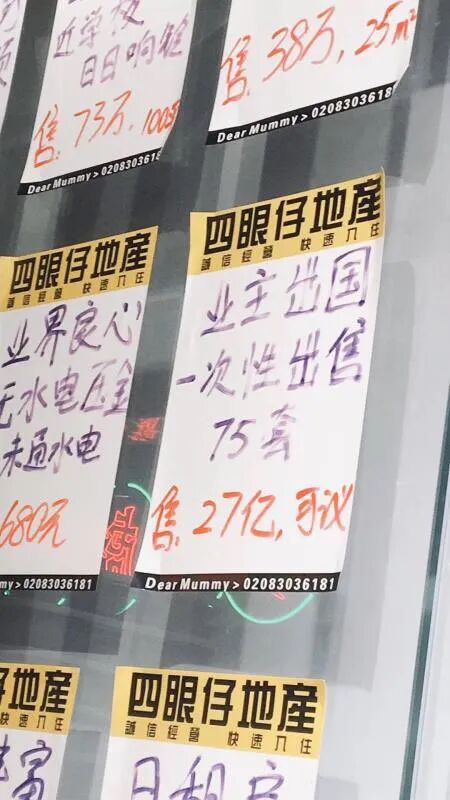 近学校
日日响铃
售:73万,100㎡
Dear Mummy > 0208303618
售:38万,25m²
Dear Mummy > 0208303618
四眼仔地産
誠信經營 快速入住
业界良心
无水电压金
未通水电
680元
my > 02083036181
四眼仔地産
誠信經營 快速入住
业主出国
一次性出售
75套
售:27亿,可议
Dear Mummy > 02083036181
仔地産
快速入住
四眼仔地産
誠信經營 快速入住